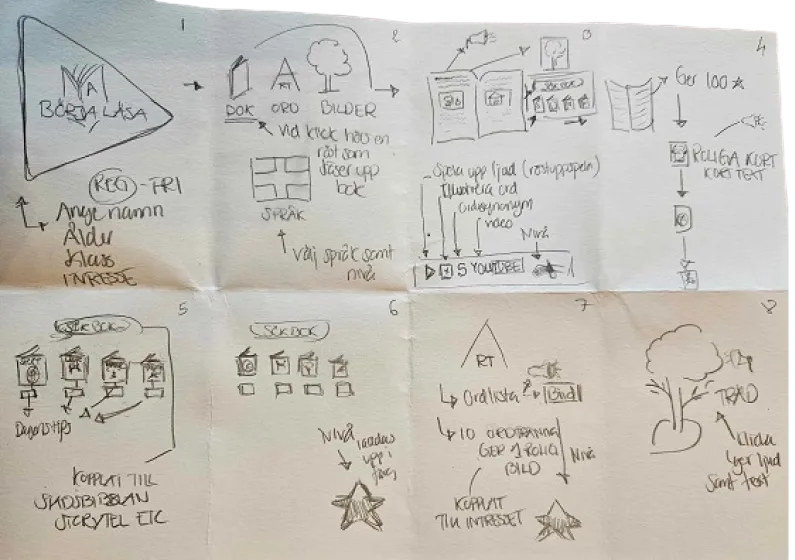 1
A
BÖRJA LÄSA
REG - FRI
Ange namn
Ålder
Klass
INTRESSE
2
RT
BOK ORD BILDER
Vid klick hörs en
röst som
läser upp
bok
SPRÅK
välj språk samt
nivå
3
SÖK BOK
Spela upp ljud (röstuppspeln)
Illustrera ord
ordsynonym
video
Nivå
S YOUTUBE
4
Ger 100
ROLIGA KORT
KORT TEXT
5
SÖK BOK
Dagens tips
KOPPLAT TILL
STADSBIBBLAN
STORYTEL ETC
6
SÖK BOK
Nivå laddas
upp i
färg
7
RT
Ordlista
Bild
10 ORDTRÄNING
GER 1 ROLIG
BILD
Nivå
KOPPLAT
TILL INTRESSET
8
TRÄD
klicka
ger ljud
samt text